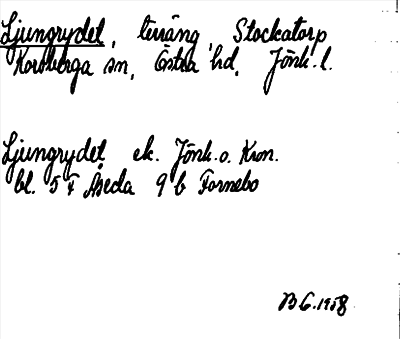 Ljungrydet, terräng, Stockatorp
Korsberga sn, Östra hd, Jönk. l.
Ljungrydet ek. Jönk. o. Kron.
bl. 5 F Åseda 9 b Fornebo
B G. 1958